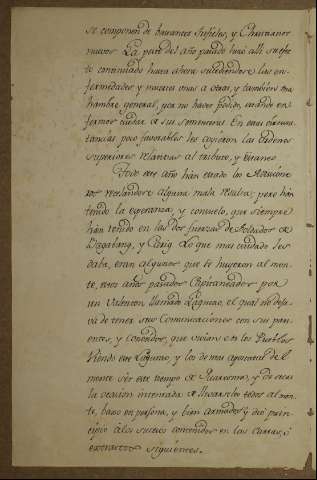 se componen de bastantes Infieles, y Christianos
nuevos. La peste del año pasado hasta allí su efec
to continuado hasta ahora sucediendose las en-
fermedades y muertes unas a otras, y tambien una
hambre general, por no haver podido, estando en
fermos cuidar a sus sementeras. En esas circuns
tancias poco favorables les cogieron las Ordenes
superiores relativas al tributo, y Estanco.
Todo este año hán estado los Misione
ros recelandose alguna mala resulta; pero hán
tenido la esperanza, y consuelo, que siempre
hán tenido en las dos fuerzas de Soldados de
Bagabag, y Carig. Lo que mas cuidado les
daba, eran algunos que se huyeron al mon-
te, estos años pasados Capitaneados por
un Valenton llamado Lagutao, el qual no deja-
va de tener sus Comunicaciones con sus pari-
entes, y conocidos, que vivian en los Pueblos
Viendo este Lagutao, y los demas apostatas del
monte ser este tiempo de Quaresma, y de
la ocasion intentada de llevarselos todos al mon-
te, baxó en persona, y bien armados y dió prin-
cipio á los sucesos contenidos en las Cartas, ó
extractos siguientes.